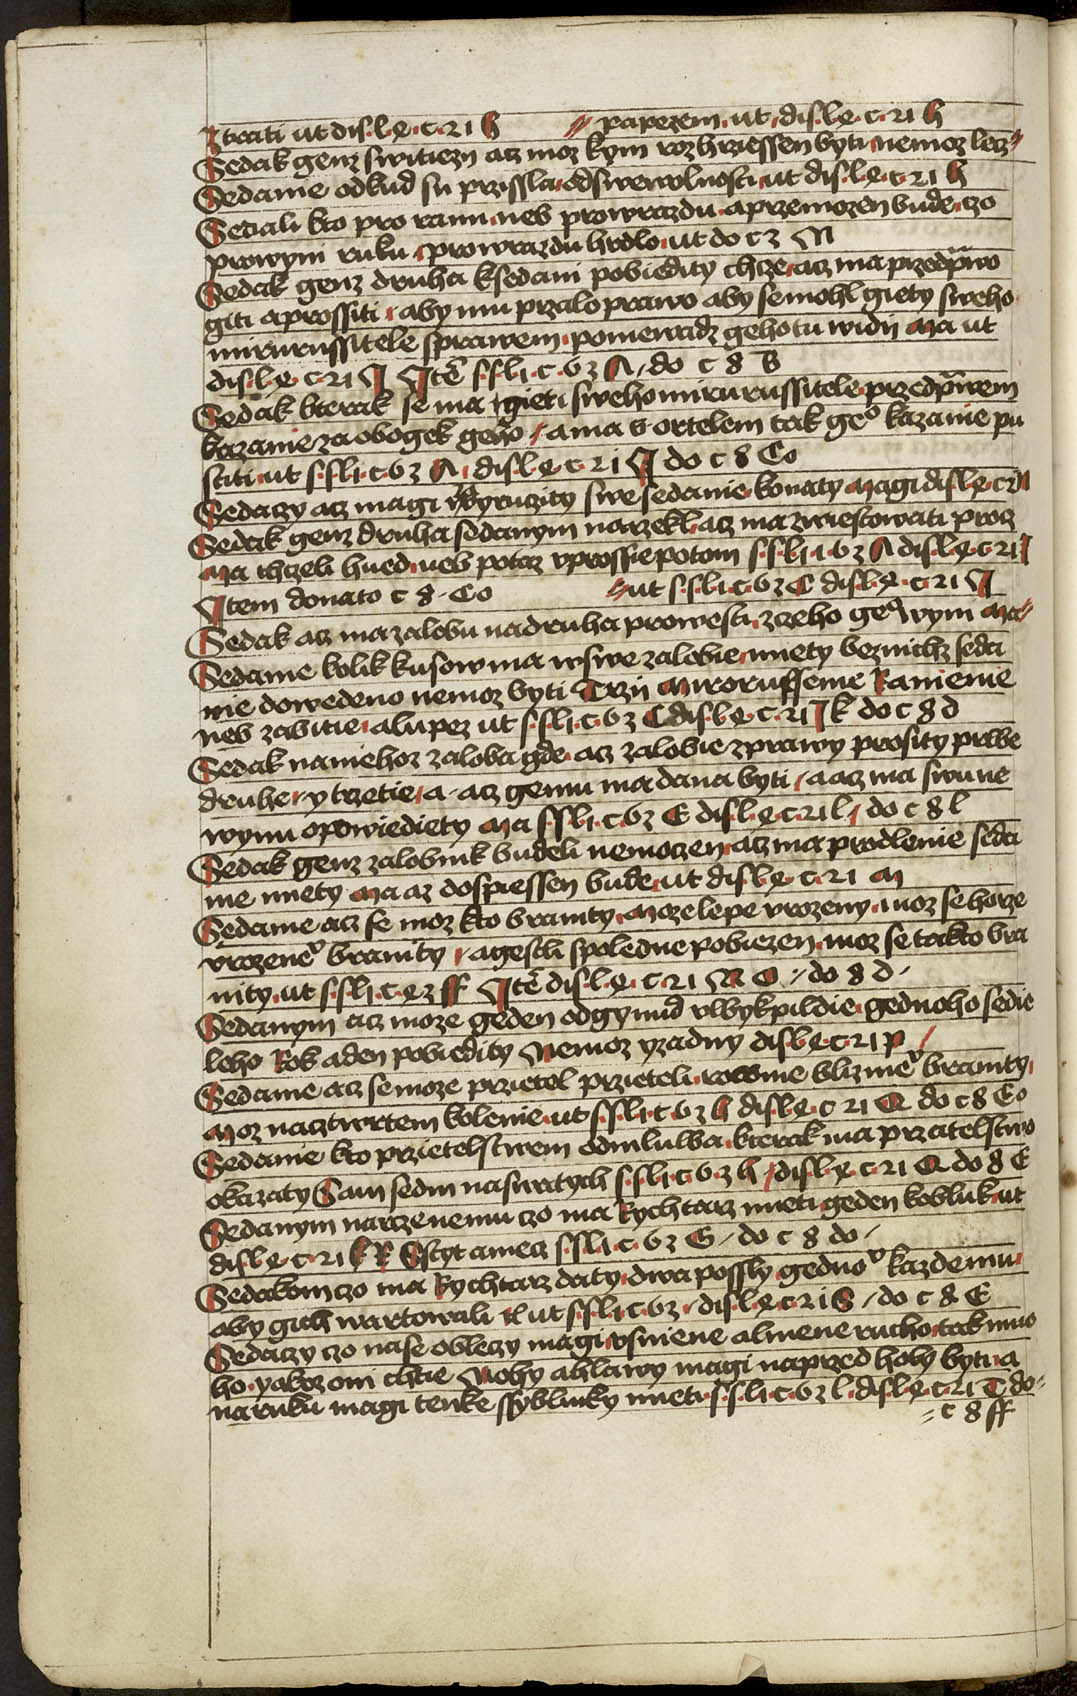 ztrati ut dis.l.e.c.21 h // papezem ut dis.l.e.c.21 h
Sedak genz switiezn acz moz kym rozhrziessen byti nemoz lecz //
Sedanie odkud su przissla odswewolnosti ut dis.l.e.c.21 h
Sedali kto pro ranu neb prowrazdu aprzemozen bude czo
prowyni ruku prowrazdu hrdlo ut do c 2 N
Sedak genz druha ksedani pobiedity chcze acz ma przedprawo
giti aprossiti aby mu przalo prawo aby semohl giety sweho
mirurussitele sprawem poniewadz gehotu widij Ma ut
dis.l.e.c.21 J Ite s.s.l.i.c.63 A do c 8 B
Sedak kterak se ma gieti swehomirurussitele przedprawem
kazanie za obogek geho a ma s ortelem tak geo kazanie pu
stiti ut s.s.l.i.c.63 A dis.l.e.c.21 J do c 8 Co
Sedaczy acz magi wyruczity swesedanie konaty Magi dis.l.e.c.21
Sedak genz druha sedanym narzekl acz ma zwiestowati procz
Ma chczeli hned neb potaz vprossiepotom s.s.l.i.c.63 A dis.l.e.c.21 J
Item donato c 8 Co // ut s.s.l.i.c.63 C dis.l.e.c.21 J
Sedak acz ma zalobu nadruha prowesti zczeho geo wyni Ma //
Sedanie kolik kusow ma wswe zalobie mety beznichz seda
nie dowedeno nemoz byti Trzij Mirorussenie Ranienie
neb zabitie a lupez ut s.s.l.i.c.63 C dis.l.e.c.21 J k do c 8 d
Sedak naniehoz zaloba gde acz zalobie zprawy prosity prwe
druhe y trzetie a acz gemu ma dana byti a acz ma swu ne
wynu opowiediety Ma s.s.l.i.c.63 E dis.l.e.c.21 l do c 8 l
Sedak genz zalobnik budeli nemoczen acz ma prodlenie seda
nie mety Ma az dospiessen bude ut dis.l.e.c.21 M
Sedanie acz se moz kto braniti Moze lepe vrozeny moz se horze
vrozeneo braniti a gestli spoledne pobiezen moz se takto bra
nity ut s.s.l.i.c.e3 ff Ite dis.l.e.c.21 N O do 8 d
Sedanym acz moze geden odgynud wykpildie gednoho sedie
leho Rok aden pobiedity Nemoz yzadny dis.l.e.c.21 p
Sedanie acz semoze przietel przieteli rownie blizneo braniti
Moz nacztwrtem kolenie ut s.s.l.i.c.63 h dis.l.e.c.21 Q do c 8 Co
Sedanie kto przietelstwem odmluwa kterak ma przatelstwo
okazaty Sam sedm naswatych s.s.l.i.c.63 h dis.l.e.c.21 Q do 8 E
Sedanym narzczenemu czo ma Rychtarz mieti geden kobluk ut
dis.l.e.c.21 R Sstyt a mecz s.s.l.i.c.63 G do c 8 do
Sedakom czo ma Rychtarz daty dwa possly gednoo kazdemu
aby gich wartowali ut s.s.l.i.c.63 dis.l.e.c.21 S do c 8 E
Sedaczy czo nase obleczy magi vsniene a lniene rucho tak mno
ho yakoz oni chtie Nohy ahlawy magi naprzed holy byti a
naruku magi tenke ssyblinky mieti s.s.l.i.c.63 l dis.l.e.c.21 T do //
// c 8 ff